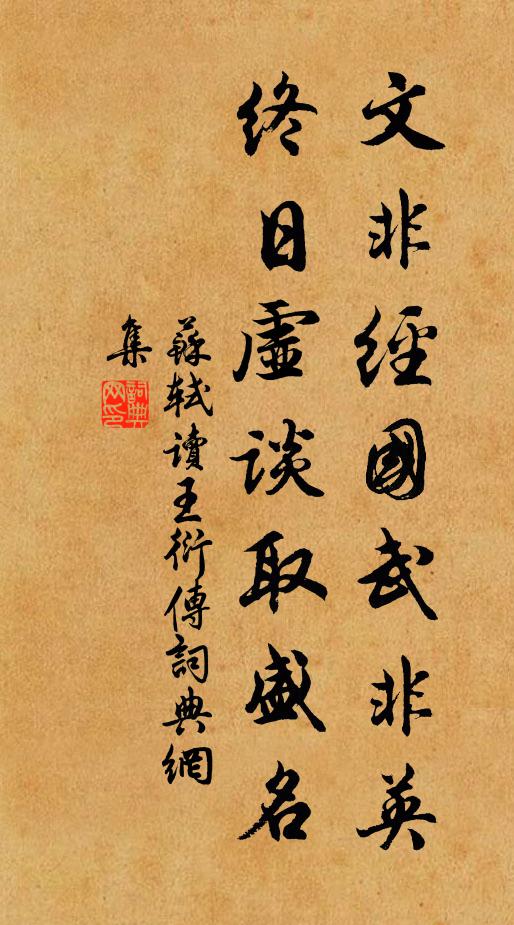 文非經國武非英
終日虛談取盛名
蘇軾讀王衍傳詞典網
集
詞典
网印